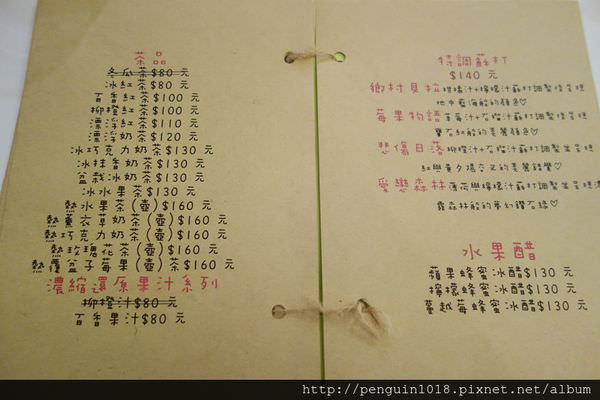 茶品
冬瓜茶$80 元
冰紅茶$80 元
百香紅茶$100 元
柳橙紅茶$100 元
漂浮紅茶$110 元
漂浮奶茶$120 元
冰巧克力奶茶$130 元
冰抹香奶茶$130 元
盆栽冰奶茶$130 元
冰水果茶$130 元
熱水果茶(壺)$160 元
熱薰衣草奶茶(壺)$160 元
熱巧克力奶茶(壺)$160 元
熱玫瑰花茶(壺)$160 元
熱覆盆子莓果(壺)茶$160 元
濃縮還原果汁系列
柳橙汁$80 元
百香果汁$80 元
特調蘇打
$140 元
鄉村貝拉 柑橘汁+檸檬汁蘇打調製
地中藍海般的顏色♡
莓果物語 蘇打調製
寶石紅般的美麗顏色♡
悲傷日落 柳橙汁+石榴汁蘇打調製
紅與黃夕陽交錯的美麗
愛戀森林 薄荷與檸檬汁蘇打調製
霧森林般的夢幻鑽石綠♡
水果醋
蘋果蜂蜜冰醋$130 元
檸檬蜂蜜冰醋$130 元
蔓越莓蜂蜜冰醋$130 元
http://penguin1018.pixnet.net/album